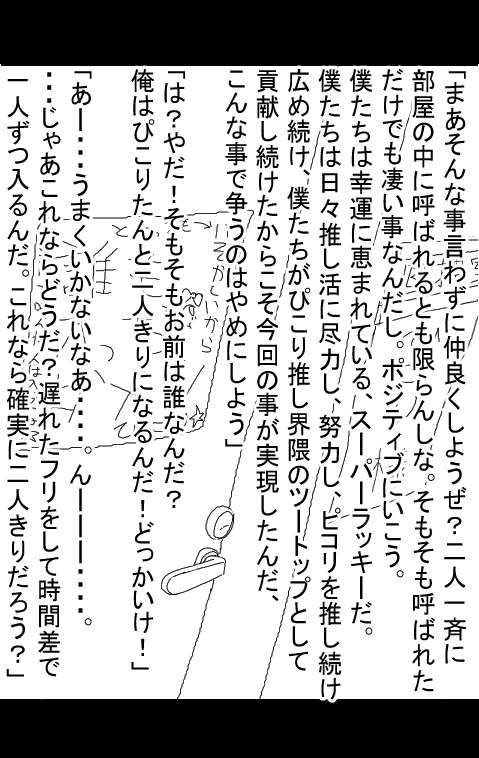 「まあそんな事言わずに仲良くしようぜ?二人一斉に
部屋の中に呼ばれるとも限らんしな。そもそも呼ばれた
だけでも凄い事なんだし。ポジティブにいこう。
僕たちは幸運に恵まれている、スーパーラッキーだ。
僕たちは日々推し活に尽力し、努力し、ピコリを推し続け
広め続け、僕たちがぴこり推し界隈のツートップとして
貢献し続けたからこそ今回の事が実現したんだ、
こんな事で争うのはやめにしよう」
「は?やだ!そもそもお前は誰なんだ?
俺はぴこりたんと二人きりになるんだ!どっかいけ!」
「あー・・・うまくいかないなあ・・・。んーーー・・・・。
・・・じゃあこれならどうだ?遅れたフリをして時間差で
一人ずつ入るんだ。これなら確実に二人きりだろう?」
いそがしいから